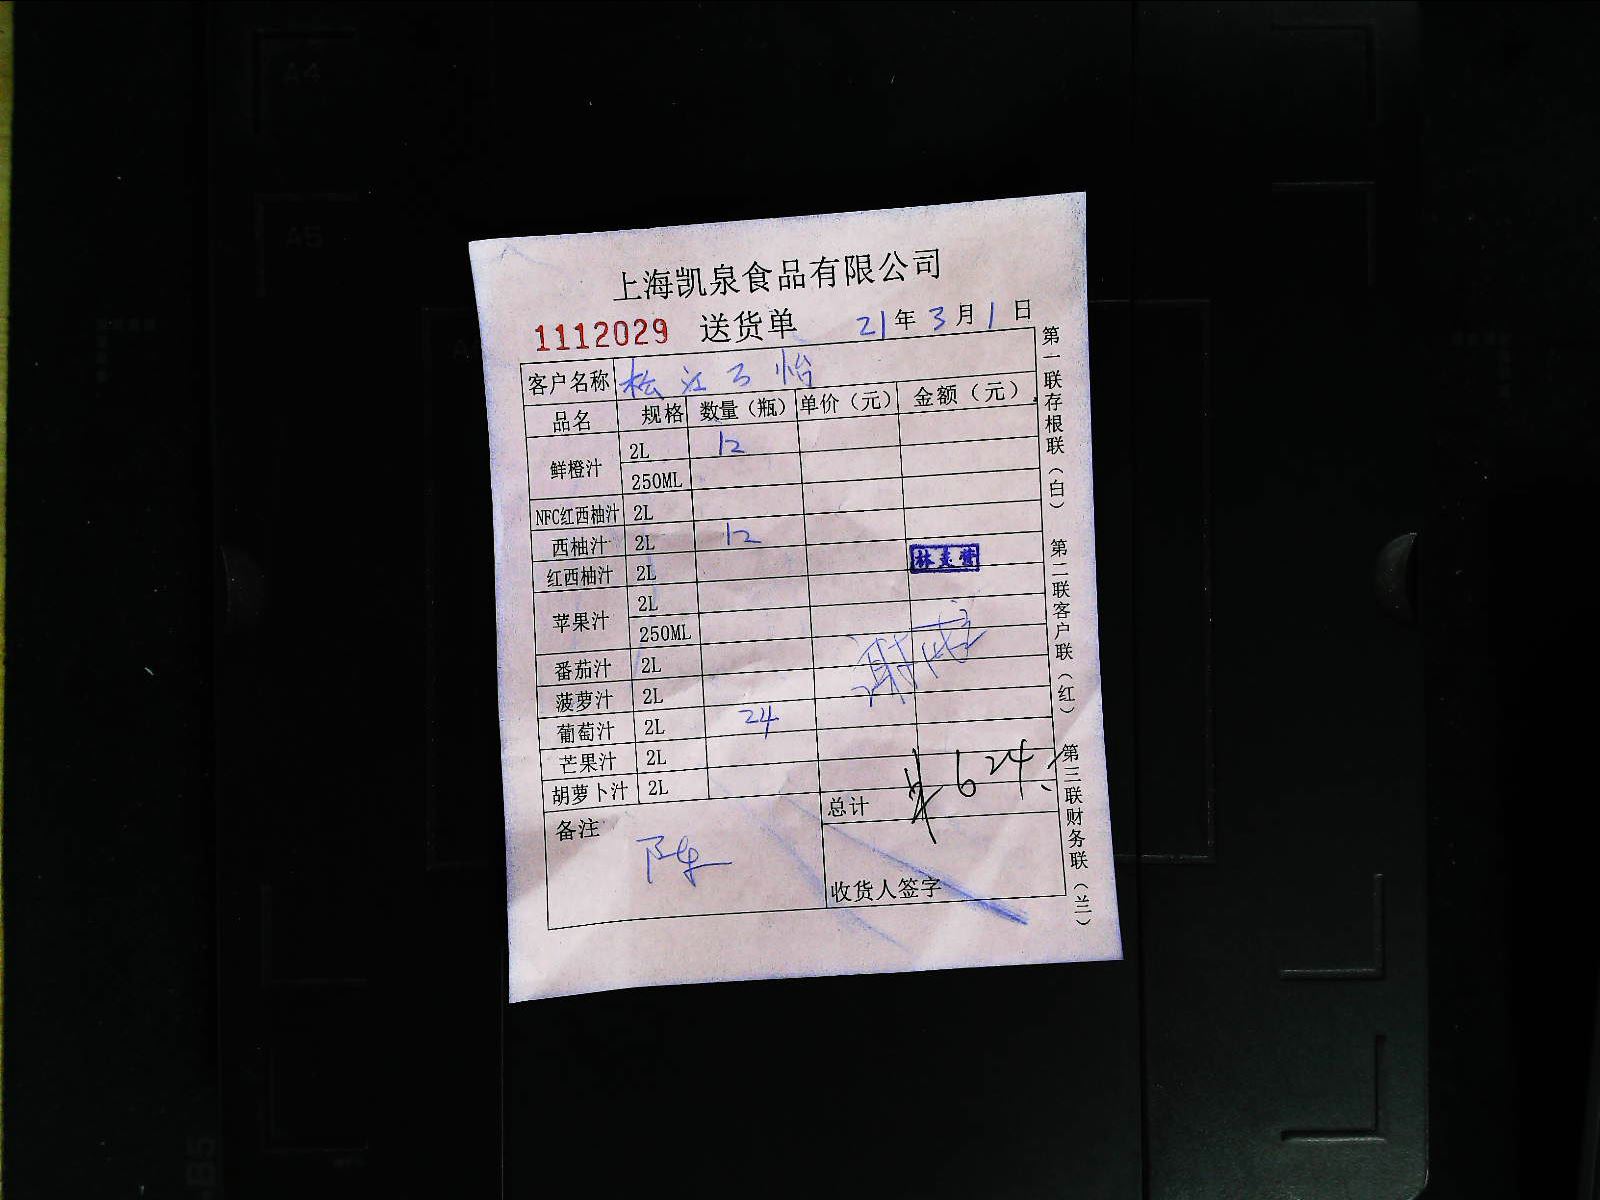 上海凯泉食品有限公司
1112029 送货单 21年3月1日
客户名称 松江
品名 规格 数量（瓶） 单价（元） 金额（元）
鲜橙汁 2L 12
250ML
NFC红西柚汁 2L
西柚汁 2L 12
红西柚汁 2L
苹果汁 2L
250ML
番茄汁 2L
菠萝汁 2L
葡萄汁 2L 24
芒果汁 2L
胡萝卜汁 2L
总计 ¥624
备注
收货人签字
第一联存根联（白） 第二联客户联（红） 第三联财务联（兰）
A4
A5
B5